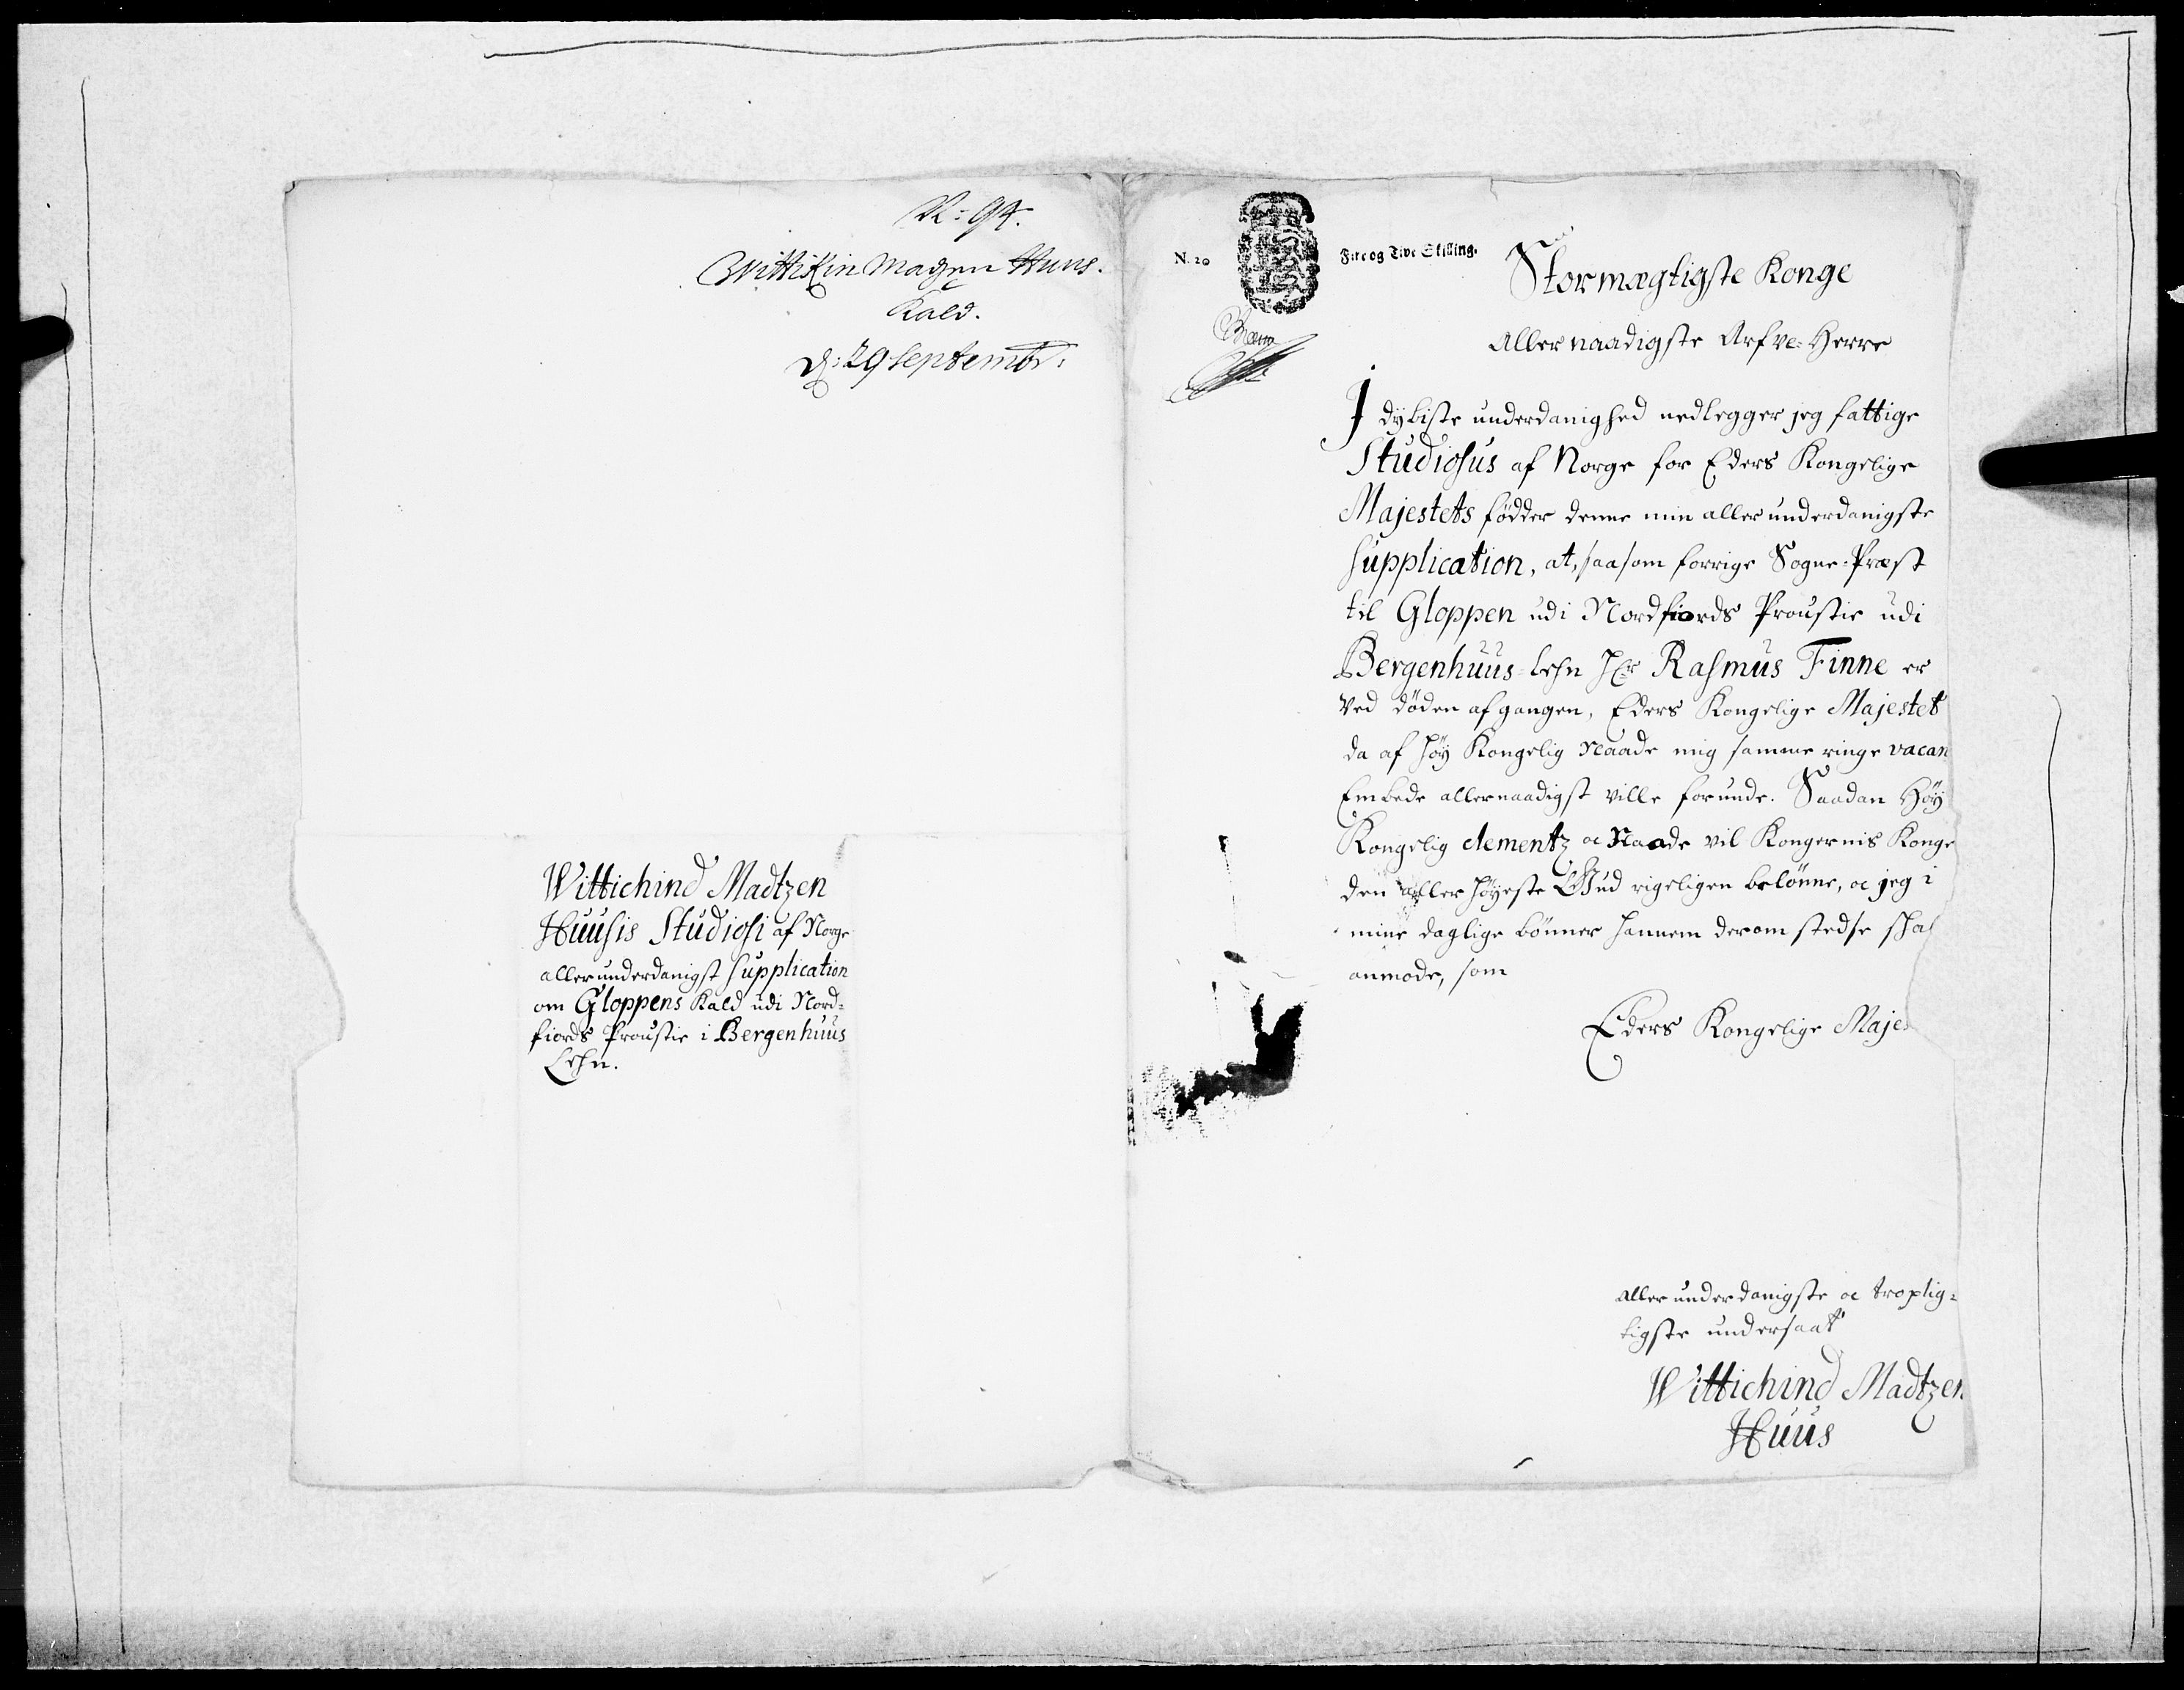 N: 94.
Wittikin Madzen Huus.
Kald.
d: 29 Septembr:
Wittichind Madtzen
Huusis Studiosi af Norge
allerunderdanigst Supplication
om Gloppens Kald udi Nord-
fiords Proustie i Bergenhuus
Lehn.
N. 20
Fire og Tive Skilling.
Stormægtigste Konge
Allernaadigste Arfve-Herre
I dybiste underdanighed nedlegger jeg fattige
Studiosus af Norge for Eders Kongelige
Majestets födder denne min allerunderdanigste
Supplication, at, saasom forrige Sogne-Præst
til Gloppen udi Nordfiords Proustie udi
Bergenhuus-Lehn Hr Rasmus Finne er
ved döden afgangen, Eders Kongelige Majestet
da af höy Kongelig Naade mig samme ringe vacan
Embede allernaadigst ville forunde. Saadan Höy
Kongelig clementz oc Naade vil Kongernis Konge
den aller höyeste Gud rigeligen belönne, oc jeg i
mine daglige bönner hannem derom stedse skal
anmode, som
Eders Kongelige Majes
allerunderdanigste oc troplig-
tigste undersaat
Wittichind Madtzen
Huus